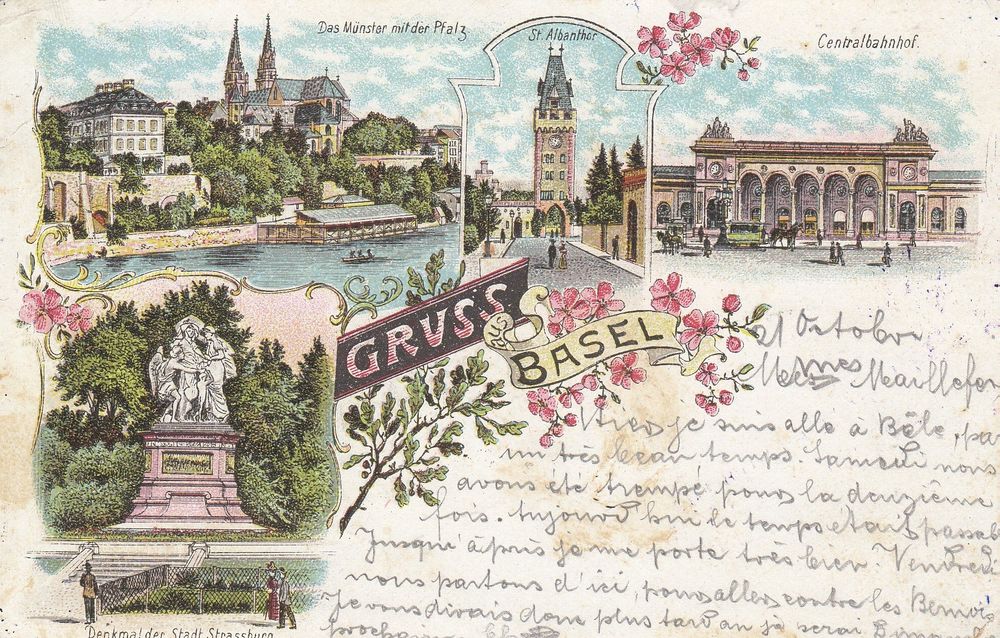 Das Münster mit der Pfalz
St. Albanthor
Centralbahnhof.
GRUSS
BASEL
Denkmal der Stadt Strassburg
21 Octobre
Mes Maillefer
Hier je suis allé à Bâle, par
un très beau temps Samedi nous
avons été trempé pour la deuzième
fois. aujourd hui le temps etait passab
Jusqu'à pris je me porte très bien. Vendredi
nous partons d'ici, pour aller contre les Bernois
Je vous dirais donc plus tard an je serai
prochain